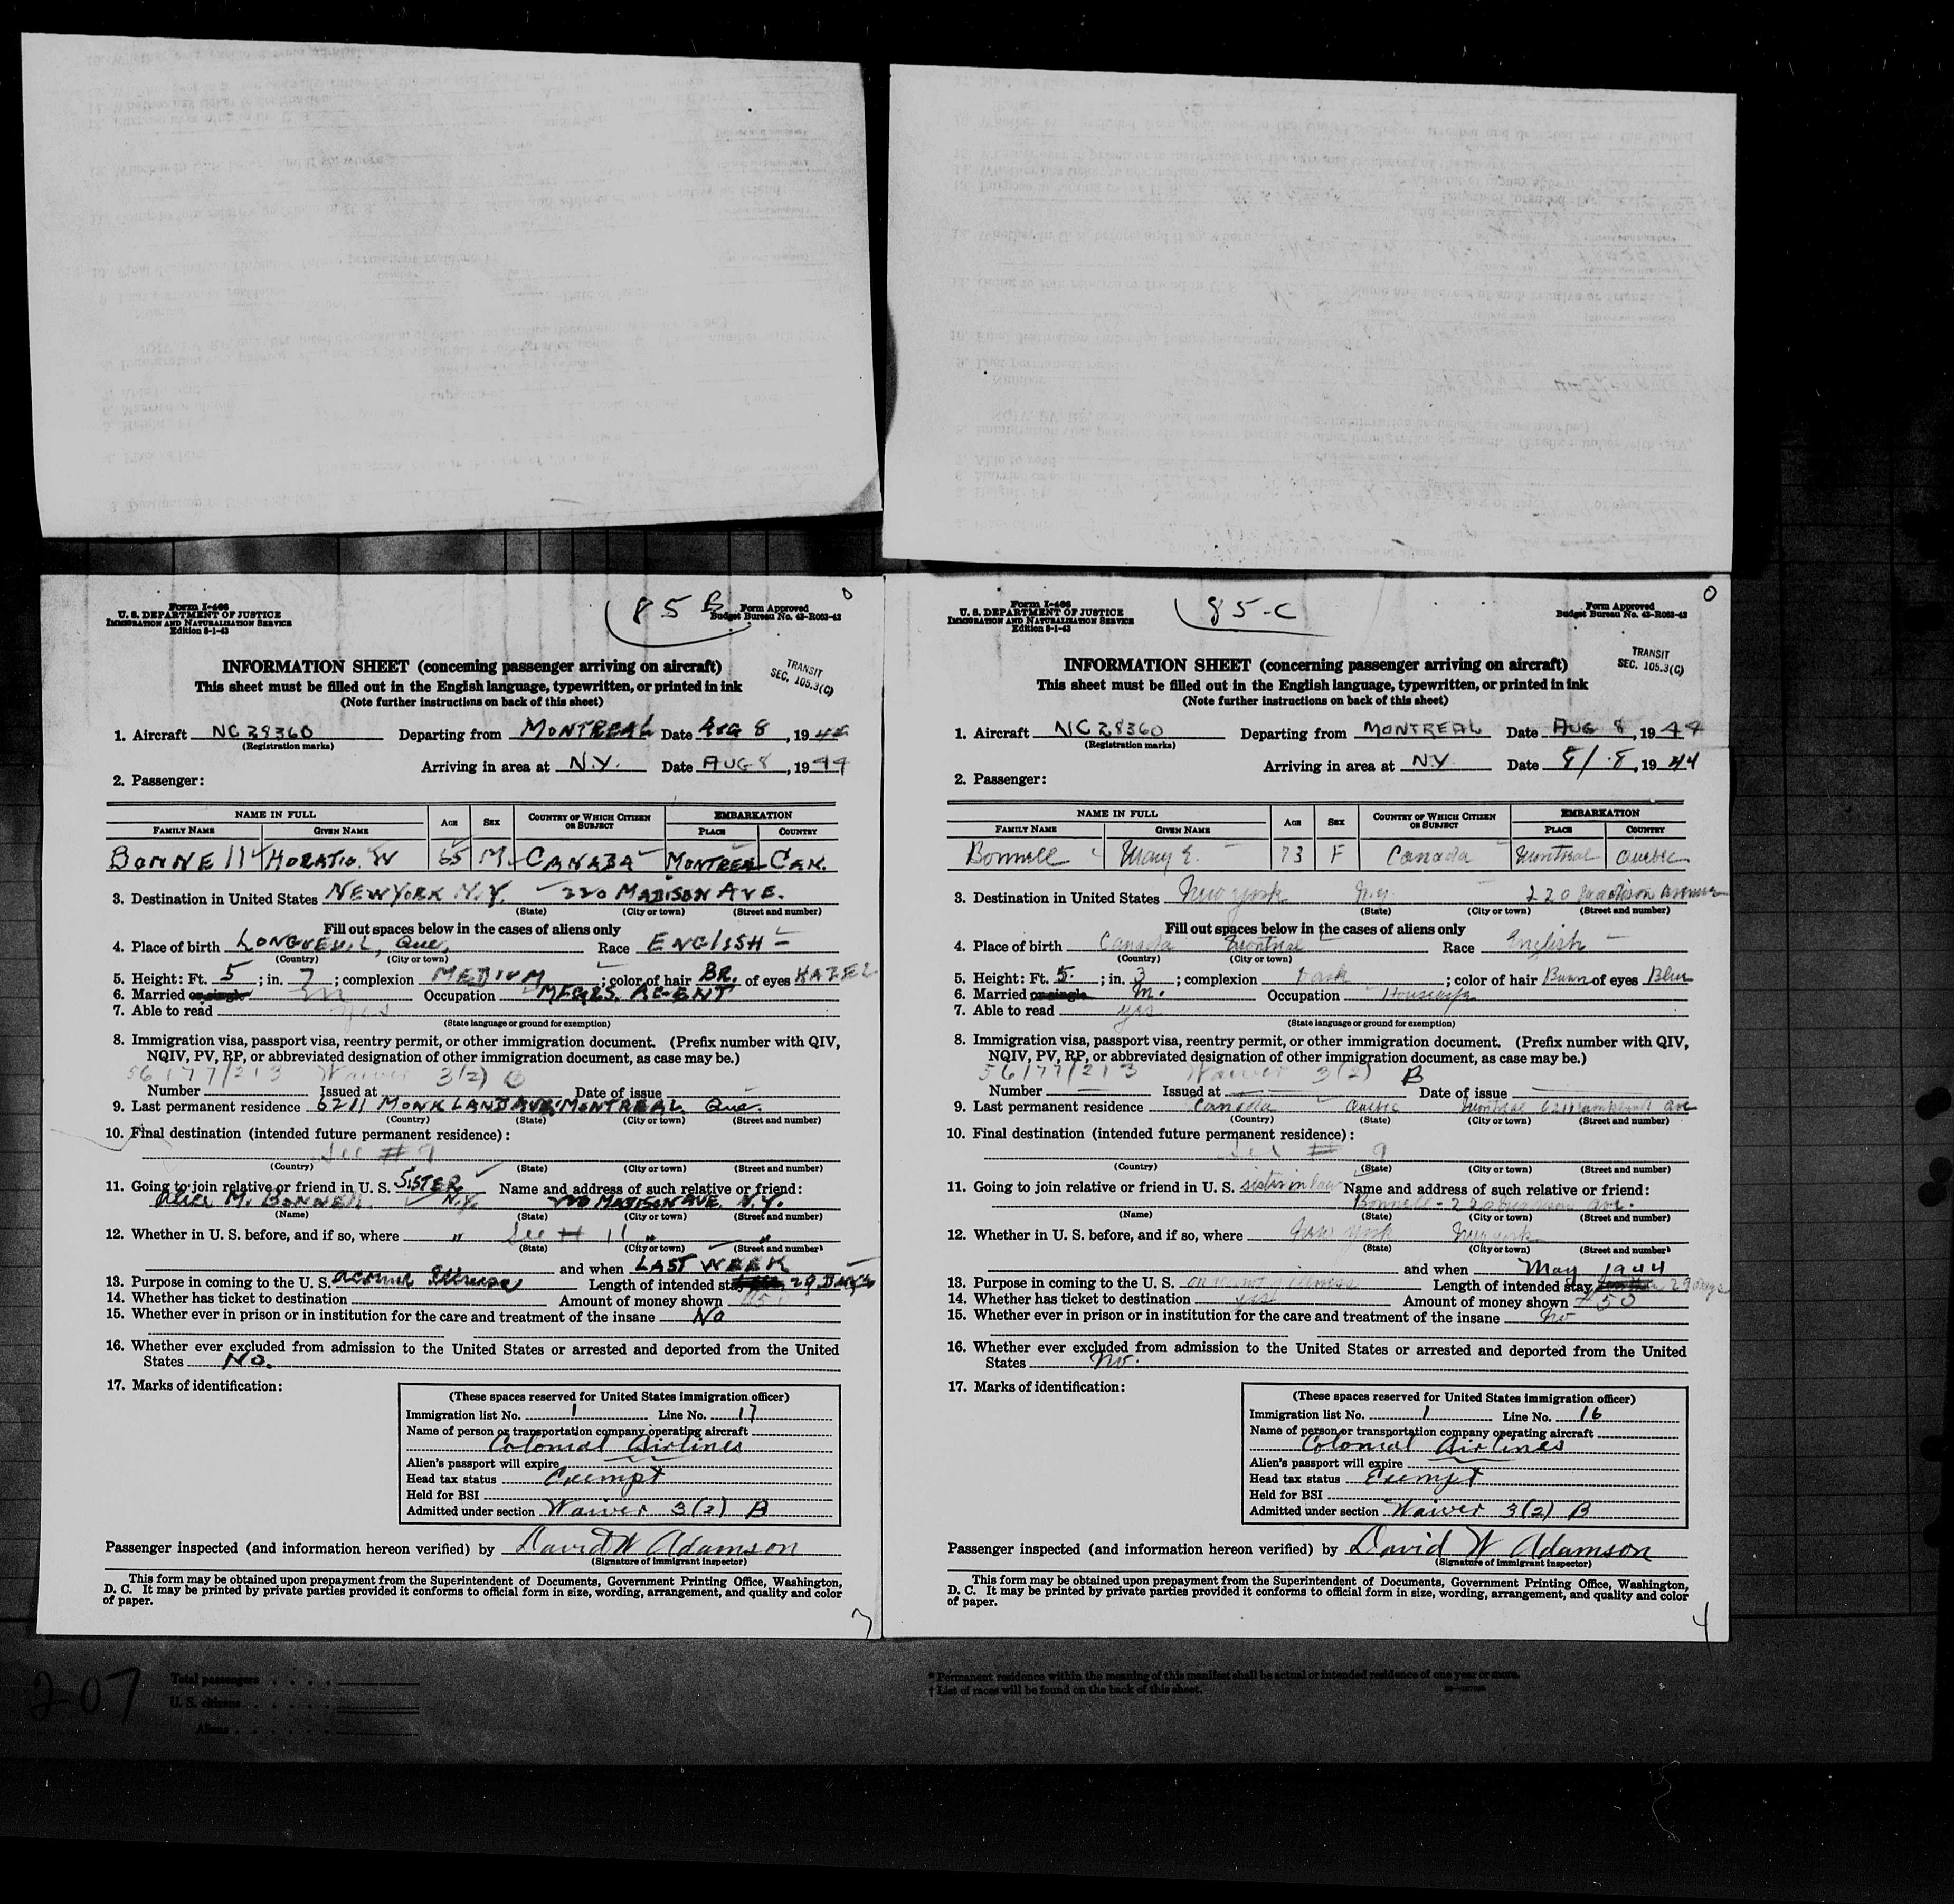 Form I-466
U. S. DEPARTMENT OF JUSTICE
IMMIGRATION AND NATURALIZATION SERVICE
Edition 8-1-43
85 B
Form Approved
Budget Bureau No. 43-R063-42
TRANSIT
SEC. 105.3(C)
INFORMATION SHEET (concerning passenger arriving on aircraft)
This sheet must be filled out in the English language, typewritten, or printed in ink
(Note further instructions on back of this sheet)
1. Aircraft NC 28360 Departing from MONTREAL Date AUG 8, 1944
(Registration marks)
Arriving in area at N.Y. Date AUG 8, 1944
2. Passenger:
NAME IN FULL AGE SEX COUNTRY OF WHICH CITIZEN OR SUBJECT EMBARKATION
FAMILY NAME GIVEN NAME PLACE COUNTRY
BONNEll HORATIO. W 65 M. CANADA MONTREAL CAN.
3. Destination in United States NEW YORK N.Y. 220 MADISON AVE.
(State) (City or town) (Street and number)
Fill out spaces below in the cases of aliens only
4. Place of birth LONGUEUIL, Que. Race ENGLISH
(Country) (City or town)
5. Height: Ft. 5; in. 7; complexion MEDIUM; color of hair BR. of eyes HAZEL
6. Married or single m Occupation MFGRS. AGENT
7. Able to read Yes
(State language or ground for exemption)
8. Immigration visa, passport visa, reentry permit, or other immigration document. (Prefix number with QIV,
NQIV, PV, RP, or abbreviated designation of other immigration document, as case may be.)
56177/213 Waiver 3(2) B
Number Issued at Date of issue
9. Last permanent residence 6211 MONKLAND AVE. MONTREAL Que.
(Country) (State) (City or town) (Street and number)
10. Final destination (intended future permanent residence):
See # 9
(Country) (State) (City or town) (Street and number)
11. Going to join relative or friend in U. S. SISTER Name and address of such relative or friend:
Alice M. BONNELL. N.Y. 220 MADISON AVE. N.Y.
(Name) (State) (City or town) (Street and number)
12. Whether in U. S. before, and if so, where " See # 11 " "
(State) (City or town) (Street and number)
and when LAST WEEK
13. Purpose in coming to the U. S. account illness Length of intended stay 29 DAYS
14. Whether has ticket to destination Amount of money shown
15. Whether ever in prison or in institution for the care and treatment of the insane No
16. Whether ever excluded from admission to the United States or arrested and deported from the United
States No.
17. Marks of identification:
(These spaces reserved for United States immigration officer)
Immigration list No. 1 Line No. 17
Name of person or transportation company operating aircraft
Colonial Airlines
Alien's passport will expire
Head tax status Exempt
Held for BSI
Admitted under section Waiver 3(2) B
Passenger inspected (and information hereon verified) by David W Adamson
(Signature of immigrant inspector)
This form may be obtained upon prepayment from the Superintendent of Documents, Government Printing Office, Washington,
D. C. It may be printed by private parties provided it conforms to official form in size, wording, arrangement, and quality and color
of paper.
Form I-466
U. S. DEPARTMENT OF JUSTICE
IMMIGRATION AND NATURALIZATION SERVICE
Edition 8-1-43
85-C
Form Approved
Budget Bureau No. 43-R063-42
TRANSIT
SEC. 105.3(C)
INFORMATION SHEET (concerning passenger arriving on aircraft)
This sheet must be filled out in the English language, typewritten, or printed in ink
(Note further instructions on back of this sheet)
1. Aircraft NC 28360 Departing from MONTREAL Date AUG 8, 1944
(Registration marks)
Arriving in area at N.Y. Date 8/8, 1944
2. Passenger:
NAME IN FULL AGE SEX COUNTRY OF WHICH CITIZEN OR SUBJECT EMBARKATION
FAMILY NAME GIVEN NAME PLACE COUNTRY
Bonnell Mary E. 73 F Canada Montreal Quebec
3. Destination in United States New York N.Y. 220 Madison Avenue
(State) (City or town) (Street and number)
Fill out spaces below in the cases of aliens only
4. Place of birth Canada Montreal Race English
(Country) (City or town)
5. Height: Ft. 5; in. 3; complexion Dark; color of hair Brown of eyes Blue
6. Married or single m. Occupation Housewife
7. Able to read yes
(State language or ground for exemption)
8. Immigration visa, passport visa, reentry permit, or other immigration document. (Prefix number with QIV,
NQIV, PV, RP, or abbreviated designation of other immigration document, as case may be.)
56177/213 Waiver 3(2) B
Number Issued at Date of issue
9. Last permanent residence Canada Quebec Montreal 6211 Monkland Ave
(Country) (State) (City or town) (Street and number)
10. Final destination (intended future permanent residence):
See # 9
(Country) (State) (City or town) (Street and number)
11. Going to join relative or friend in U. S. sister in law Name and address of such relative or friend:
Bonnell - 220 Madison Ave.
(Name) (State) (City or town) (Street and number)
12. Whether in U. S. before, and if so, where New York New York
(State) (City or town) (Street and number)
and when May 1944
13. Purpose in coming to the U. S. on account of illness Length of intended stay 29 days
14. Whether has ticket to destination yes Amount of money shown 50
15. Whether ever in prison or in institution for the care and treatment of the insane no
16. Whether ever excluded from admission to the United States or arrested and deported from the United
States no.
17. Marks of identification:
(These spaces reserved for United States immigration officer)
Immigration list No. 1 Line No. 16
Name of person or transportation company operating aircraft
Colonial Airlines
Alien's passport will expire
Head tax status Exempt
Held for BSI
Admitted under section Waiver 3(2) B
Passenger inspected (and information hereon verified) by David W Adamson
(Signature of immigrant inspector)
This form may be obtained upon prepayment from the Superintendent of Documents, Government Printing Office, Washington,
D. C. It may be printed by private parties provided it conforms to official form in size, wording, arrangement, and quality and color
of paper.
4
207
Total passengers
U. S. citizens
Aliens
* Permanent residence within the meaning of this manifest shall be actual or intended residence of one year or more.
† List of races will be found on the back of this sheet.